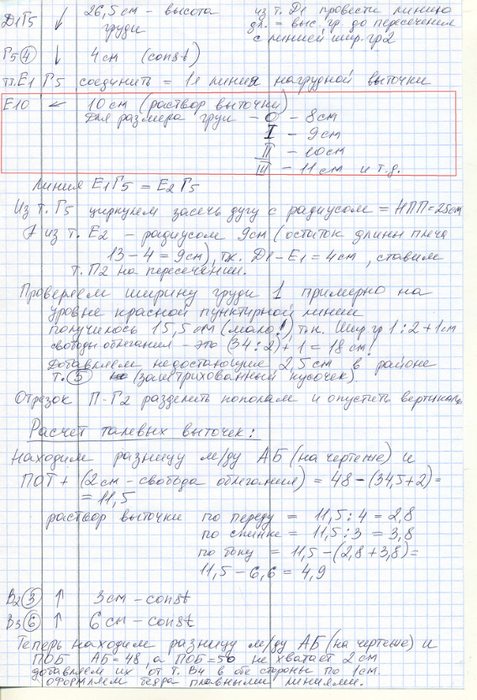 Д1Г5 ↓ 26,5см - высота груди из т. Д1 провести линию
дл. = выс. гр. до пересечения
с линией шир. гр 2
Г5 4 ↓ 4 см (const)
тт. Е1 Г5 соединить = 1я линия нагрудной выточки
Е10 ← 10 см (раствор выточки)
для размера груди - 0 - 8см
I - 9см
II - 10см
III - 11см и т.д.
Линия Е1Г5 = Е2Г5
Из т. Г5 циркулем засечь дугу с радиусом = НПП=28см
из т. Е2 - радиусом 9см (остаток длины плеча
13-4 = 9см), т.к. Д1-Е1 = 4см, ставим
т. П2 на пересечении.
Проверяем ширину груди 1 примерно на
уровне красной пунктирной линии
получилось 15,5 см (мало!) т.к. Шир гр 1 : 2 + 1см
свободы облегания - это (34:2)+1 = 18 см!
Добавляем недостающие 2,5см в районе
т. 5 (заштрихованный кусочек).
Отрезок П-Г2 разделить пополам и опустить вертикаль
Расчет талевых выточек:
Находим разницу м/ду АБ (на чертеже) и
ПОТ + (2 см - свобода облегания) = 48 - (34,5+2) =
= 11,5
раствор выточки по переду = 11,5 : 4 = 2,8
по спинке = 11,5 : 3 = 3,8
по боку = 11,5 - (2,8 + 3,8) =
11,5 - 6,6 = 4,9
В2 3 ↑ 3см - const
В3 6 ↑ 6 см - const
Теперь находим разницу м/ду АБ (на чертеже) и
ПОБ АБ = 48, а ПОБ = 50 не хватает 2 см
добавляем их от т. В4 в обе стороны по 1см.
Оформляем бедра плавными линиями.